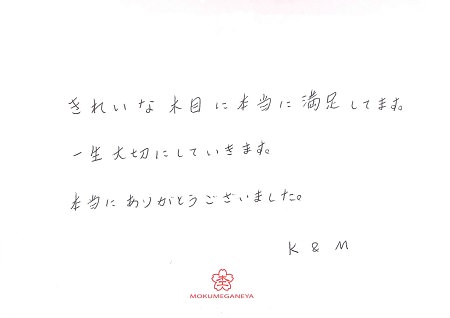 きれいな木目に本当に満足してます。
一生大切にしていきます。
本当にありがとうございました。
K & M
MOKUMEGANEYA